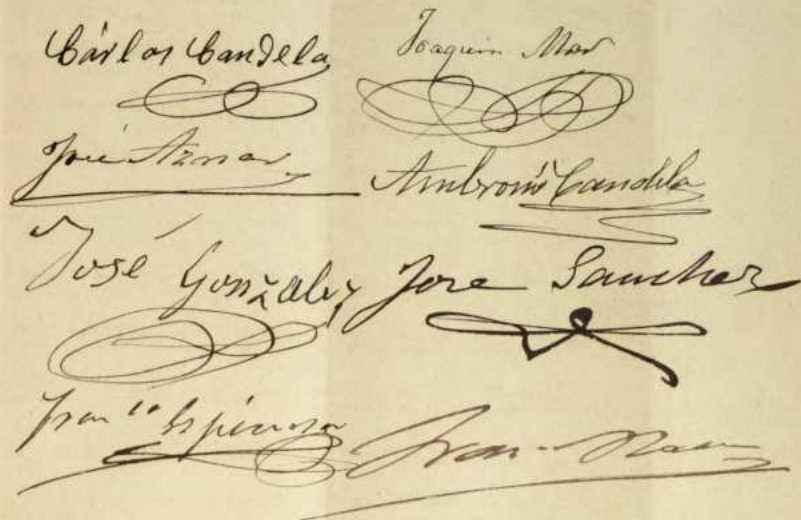 Cárlos Candela Joaquin Mas
José Aznar Ambrosio Candela
José Gonzalez Jose Sanchez
Fran.co Espinosa Fran.